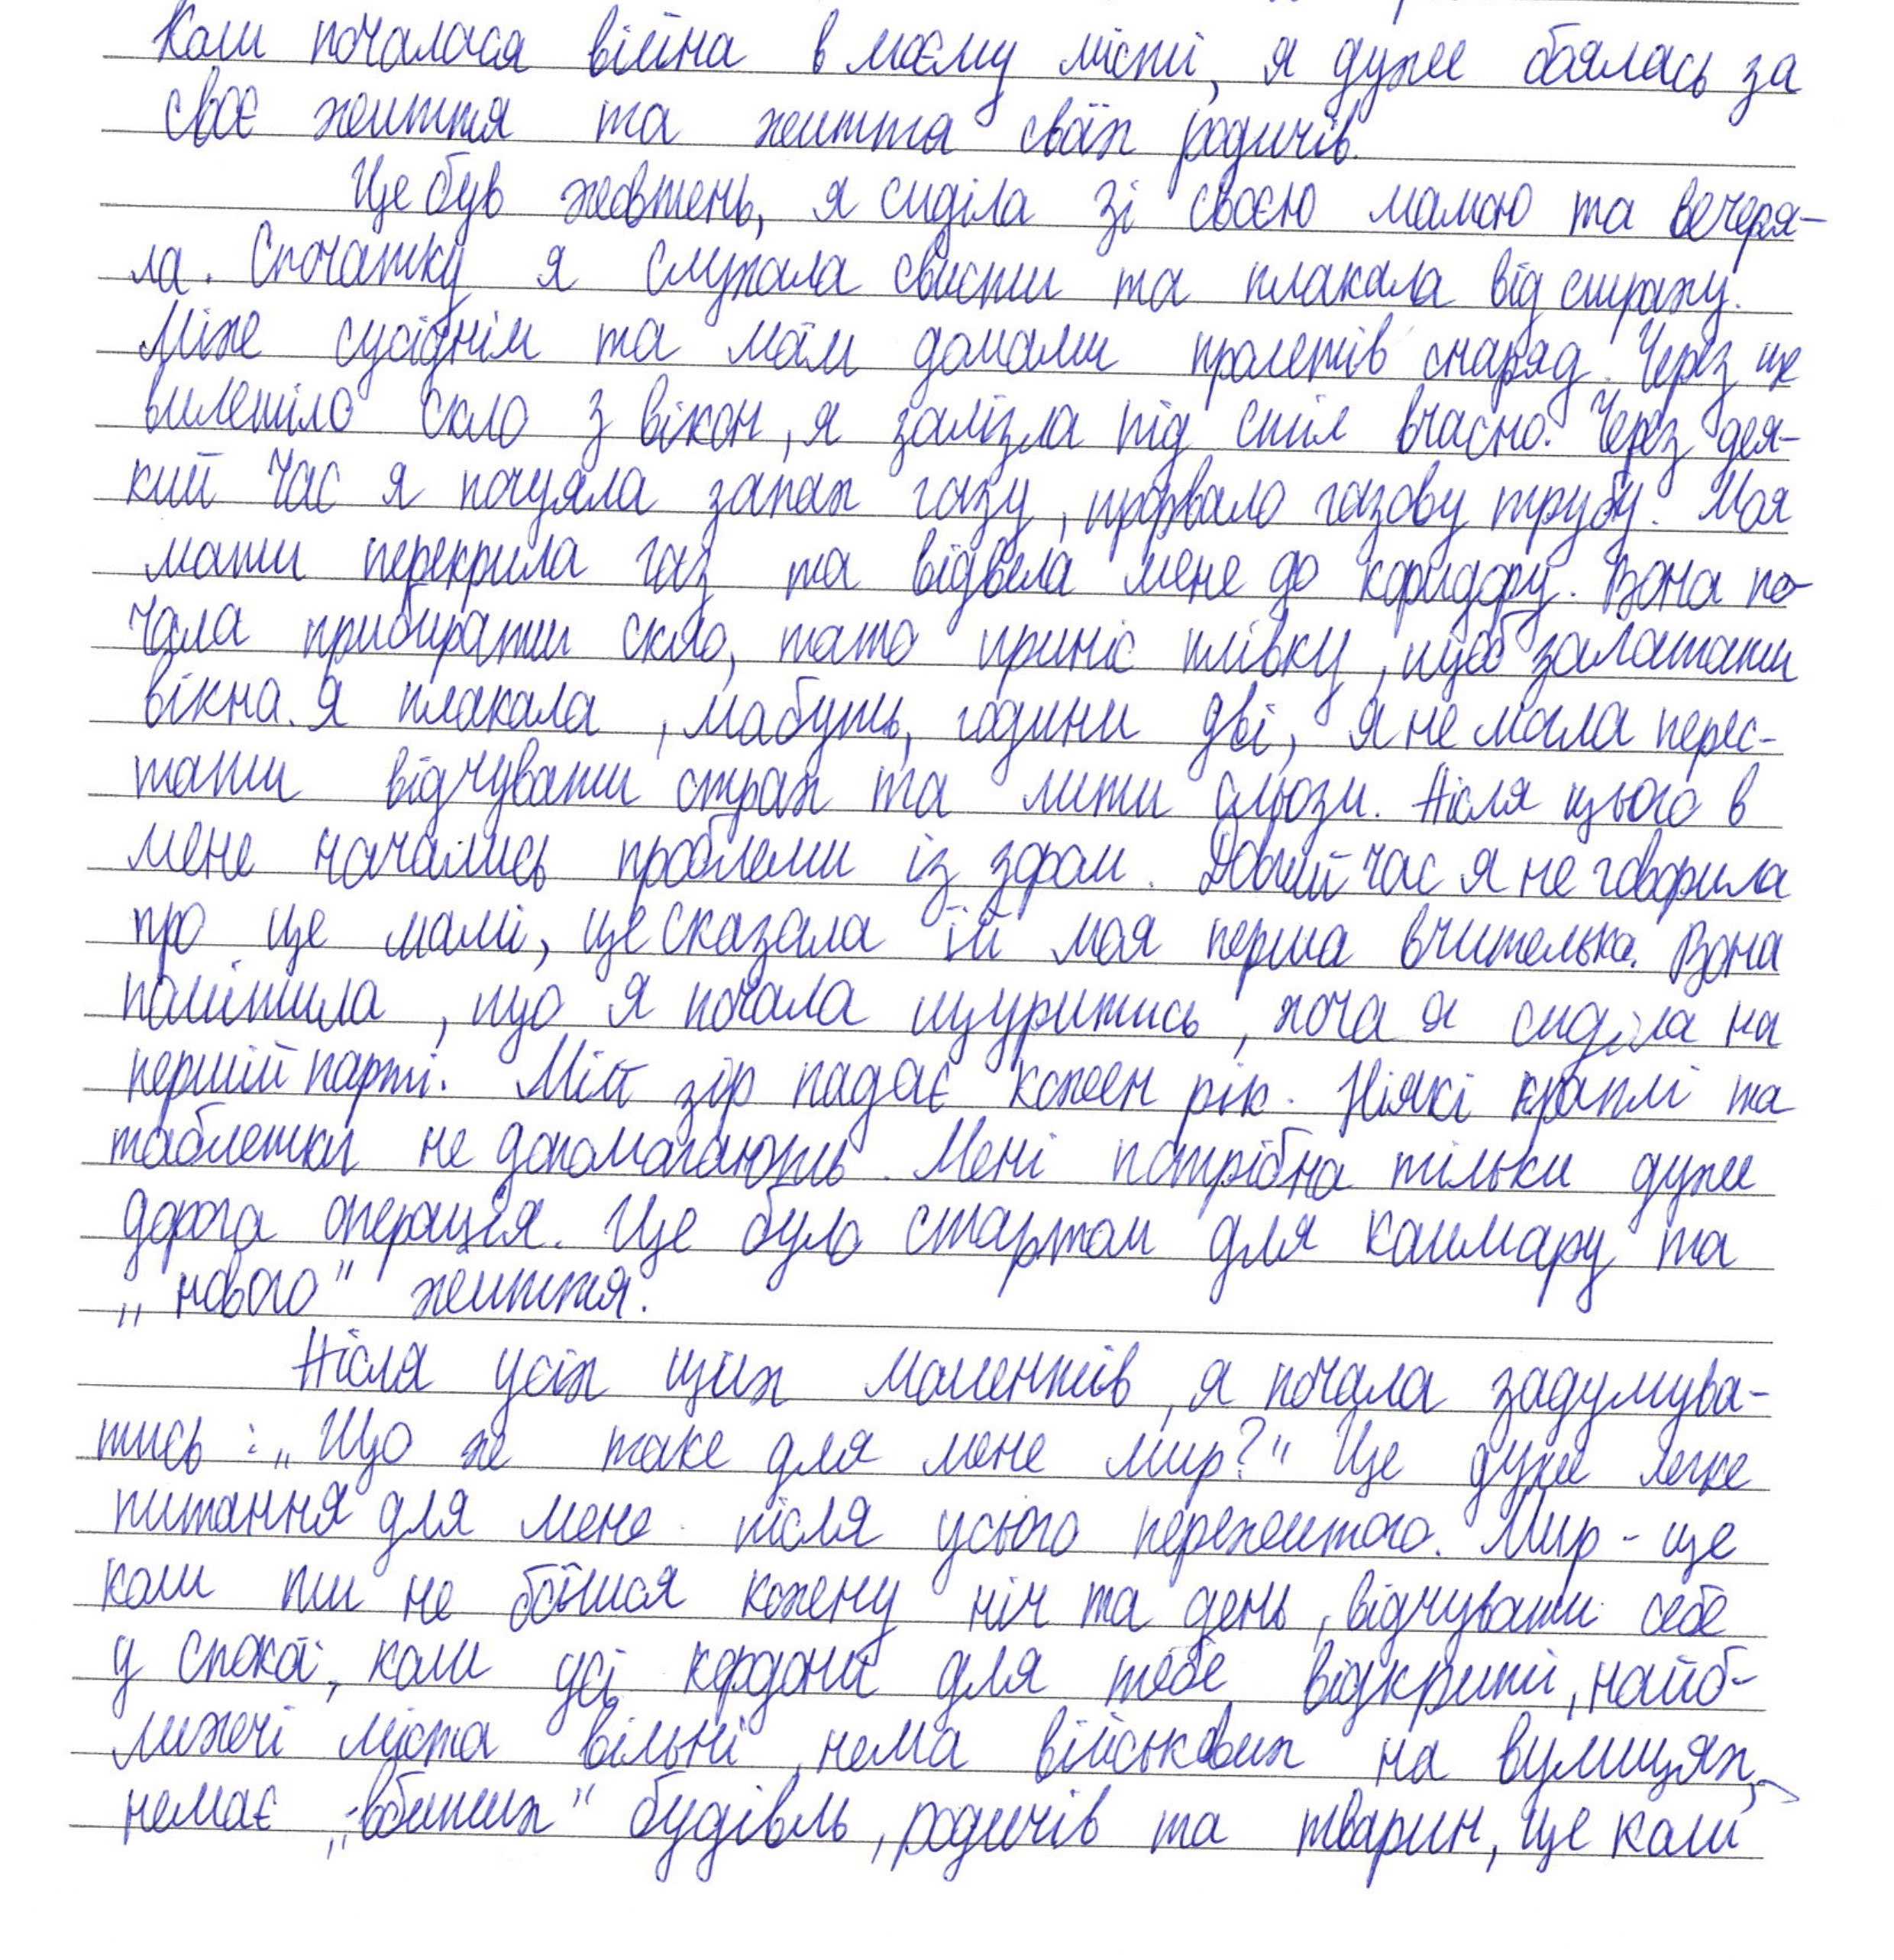 Коли почалася війна в моєму місті, я дуже боялась за
своє життя та життя своїх родичів.
Це був жовтень, я сиділа зі своєю мамою та вечеря-
ла. Спочатку я слухала свисти та плакала від страху.
Між сусіднім та моїм домами пролетів снаряд. Через це
вилетіло скло з вікон, я залізла під стіл вчасно. Через дея-
кий час я почуяла запах газу, прорвало газову трубу. Моя
мати перекрила газ та відвела мене до коридору. Вона по-
чала прибирати скло, тато приніс плівку, щоб залатати
вікна. Я плакала, мабуть, години дві, я не могла перес-
тати відчувати страх та лити сльози. Після цього в
мене начались проблеми із зором. Довгий час я не говорила
про це мамі, це сказала їй моя перша вчителька. Вона
помітила, що я почала щуритись, хоча я сиділа на
першій парті. Мій зір падає кожен рік. Ніякі краплі та
таблетки не допомагають. Мені потрібна тільки дуже
дорога операція. Це було стартом для кошмару та
„нового" життя.
Після усіх цих моментів, я почала задумува-
тись: „Що же таке для мене мир?" Це дуже легке
питання для мене після усього пережитого. Мир - це
коли ти не боїшся кожену ніч та день, відчувати себе
у спокої, коли усі кордони для тебе відкриті, найб-
лижчі міста вільні, нема військових на вулицях,
немає „вбитих" будівль, родичів та тварин, це коли